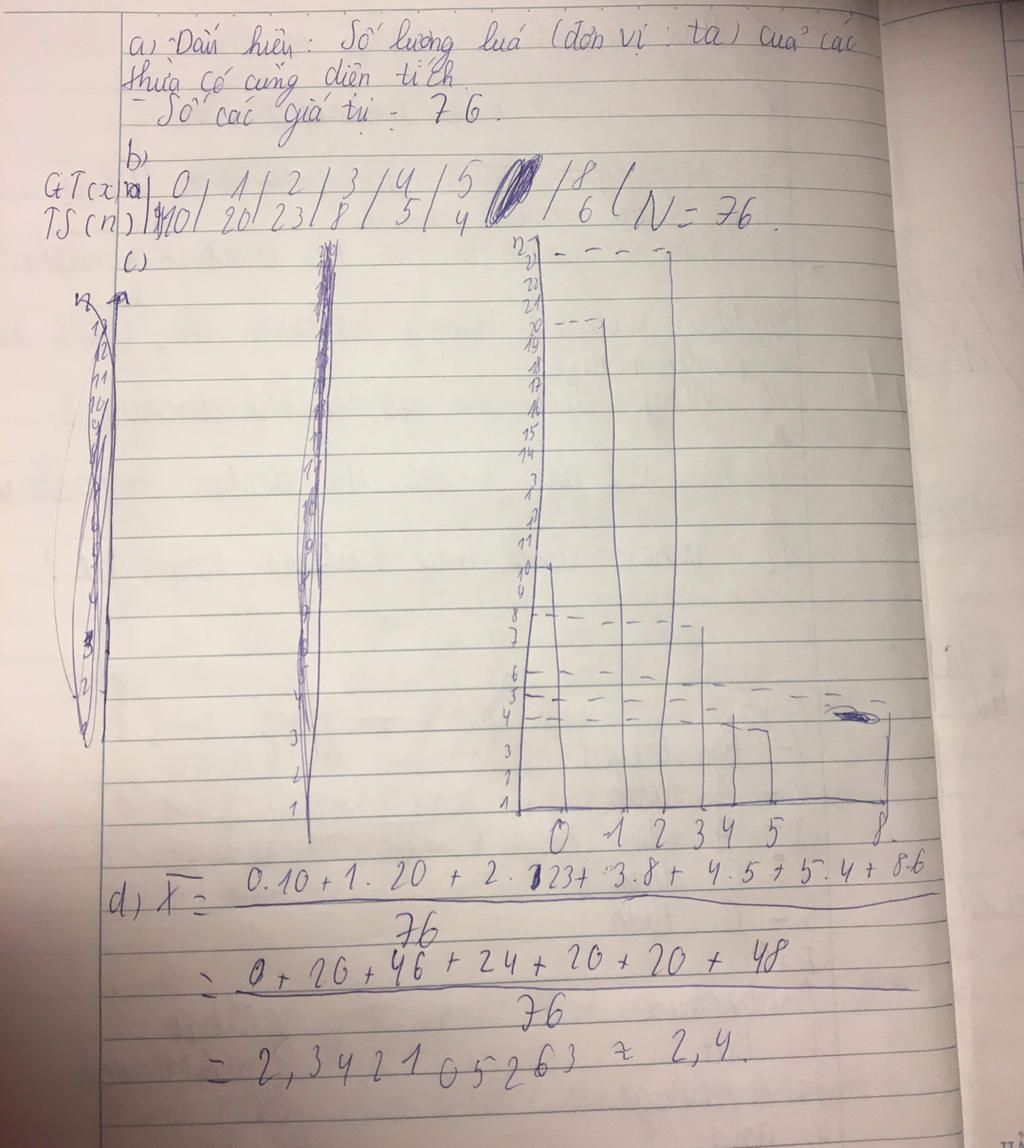 a) Dấu hiệu: Số lượng luá (đơn vị: tạ) cuả các
thửa có cùng diện tích.
- Số các giá trị - 76.
b)
GT(x) | 0 | 1 | 2 | 3 | 4 | 5 | 8 |
TS(n) | 10 | 20 | 23 | 8 | 5 | 4 | 6 | N = 76.
c)
n
23
22
21
20
19
18
17
16
15
14
13
12
11
10
9
8
7
6
5
4
3
2
1
0 1 2 3 4 5 8
d) X = 0.10 + 1.20 + 2.23 + 3.8 + 4.5 + 5.4 + 8.6
76
= 0 + 20 + 46 + 24 + 20 + 20 + 48
76
= 2,3421 05263 ≈ 2,4.